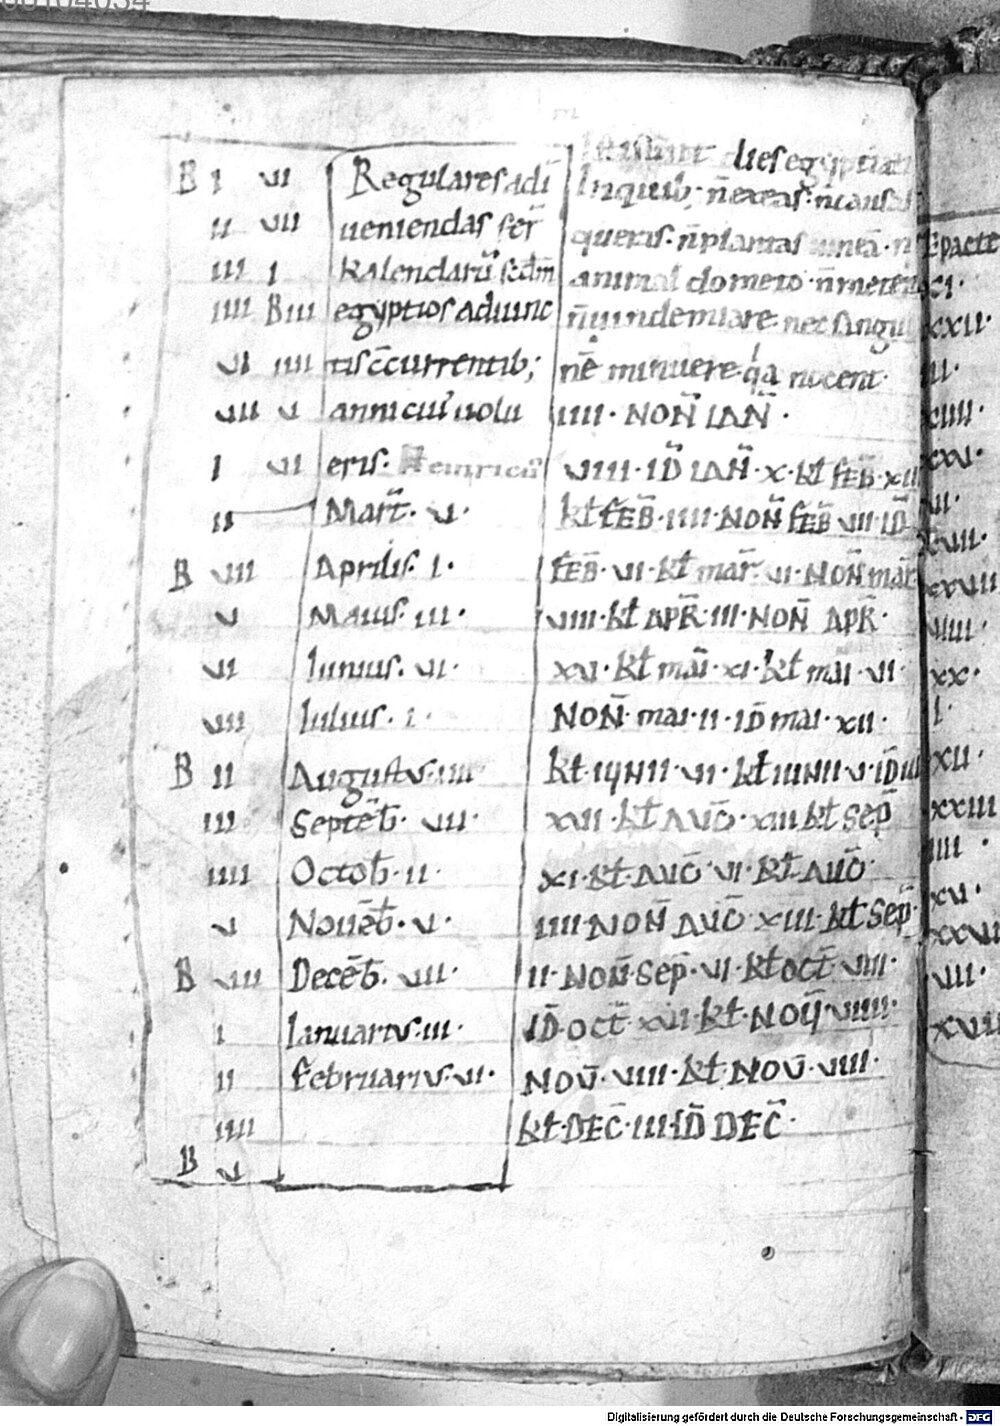 B I VI
II VII
III I
IIII B III
VI IIII
VII V
I VI
II
B VII
V
VI
VII
B II
III
IIII
V
B VII
I
II
IIII
B V
Regulares adī
ueniendas fer̄
kalendarū scdm̄
egyptios adiunc
tis c̄currentib;
anni cui' uolu
eris. Heinricus
Mar̄t. V.
Aprilis. I.
Maius. III.
Iunius. VI.
Iulius. I.
Augustus. IIII
Septēb. VII.
Octob. II.
Nouēb. V.
Decēb. VII.
Ianuarius. III.
Februarius. VI.
dies egyptiaci
In quib; n̄ exeas. n̄ causas
queras. n̄ plantas uineā. n̄
animal domeio. n̄
n̄ uindemiare nec sangu
nē minuere. q̇a nocent.
IIII. NOÑ IAÑ.
VIIII. ID̄ IAÑ. X. KŁ FEB̄. XII
KŁ FEB̄. IIII. NOÑ FEB̄ VII. ID̄
FEB̄. VI. KŁ mar̄. VI. NOÑ mar̄
VIII. KŁ APR̄. III. NOÑ APR̄.
XVI. KŁ mai. XI. KŁ mai. VI.
NOÑ. mai. II. ID̄ mai. XII.
KŁ. VI. KŁ V. ID̄
XVII. KŁ AUḠ. XIII KŁ Sep̄
XI. KŁ. AUḠ VI. KŁ AUḠ
IIII. NOÑ AUḠ XIII. KŁ Sep̄.
II. NOÑ. Sep̄. VI. KŁ OCT̄ VIII.
ID̄. OCT̄ XII. KŁ. NOV̄ VIIII.
NOV̄. VIIII. KŁ NOV̄. VIIII.
KŁ. DEC̄. III. ID̄ DEC̄.
Epacte
XI.
XXII.
III.
XIIII.
XXV.
VI.
XVII.
XXVIII
VIIII.
XX.
I.
XII.
XXIII
IIII.
XV.
XXVI
VII.
XVIII
Digitalisierung gefördert durch die Deutsche Forschungsgemeinschaft - DFG